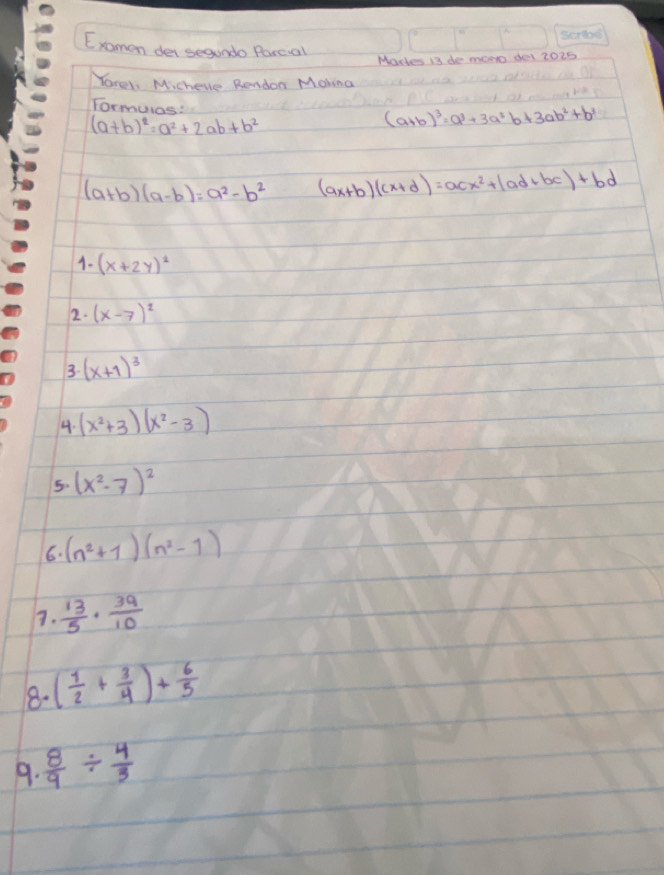 Scribe
Examen del segundo Parcial
Martes 13 de mayo del 2025
Yareli Michelle Rendon Molina
Formulas:
(a+b)²=a²+2ab+b² (a+b)³=a³+3a²b+3ab²+b³
(a+b)(a-b)=a²-b² (ax+b)(cx+d)=acx²+(ad+bc)+bd
1.(x+2y)²
2.(x-7)²
3.(x+1)³
4.(x²+3)(x²-3)
5.(x²-7)²
6.(n²+1)(n²-1)
7. 13/5 · 39/10
8.(1/2 + 3/4) + 6/5
9. 8/9 ÷ 4/3